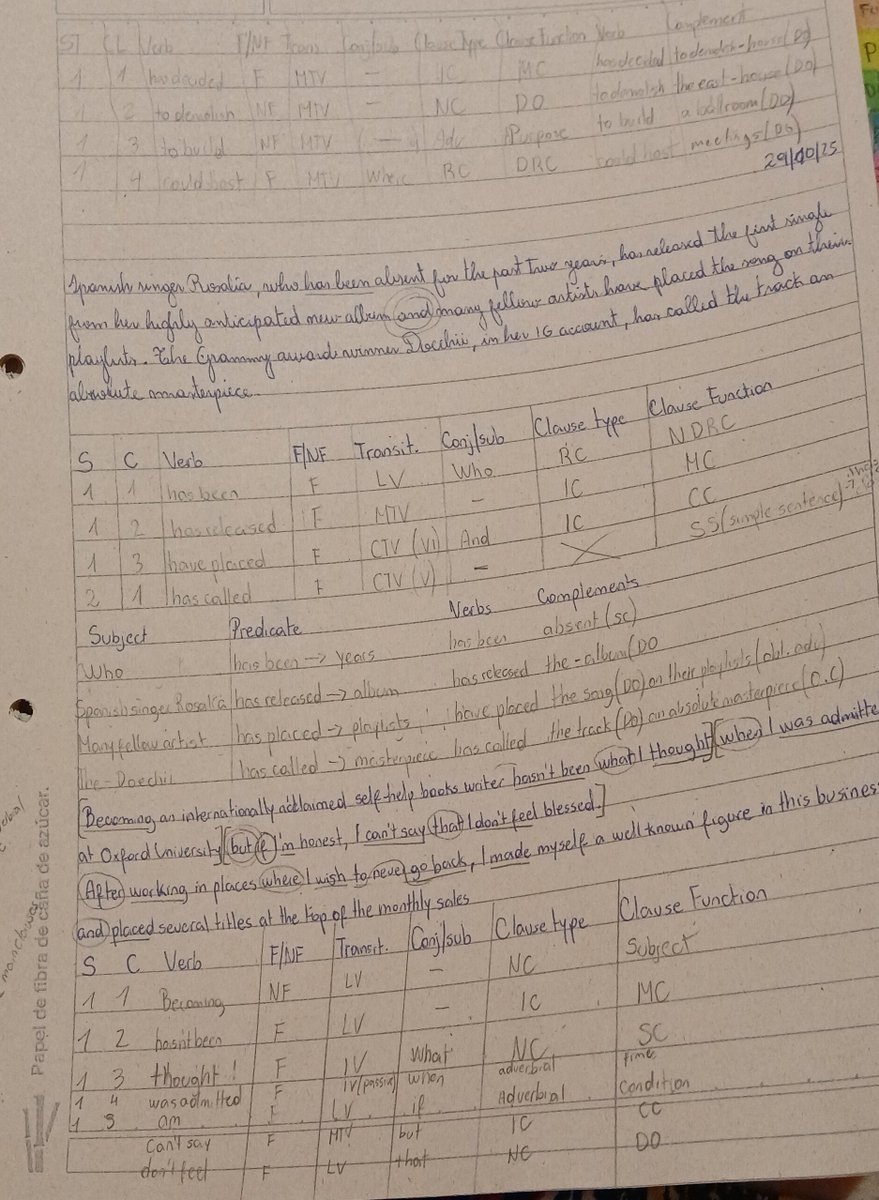 ST CL Verb F/NF Trans Conj/sub Clause Type Clause Function Verb Complement
1 1 has decided F MTV — IC MC has decided to demolish-house (DO)
1 2 to demolish NF MTV — NC DO to demolish the east-house (DO)
1 3 to build NF MTV — Adv Purpose to build a ballroom (DO)
1 4 could host F MTV Where RC DRC could host meetings (DO)
29/10/25
Spanish singer Rosalía, who has been absent for the past two years, has released the first single
from her highly anticipated new album and many fellow artists have placed the song on their
playlists. The Grammy award winner Doechii, in her IG account, has called the track an
absolute masterpiece.
S C Verb F/NF Transit. Conj/sub Clause type Clause Function
1 1 has been F LV Who RC NDRC
1 2 has released F MTV — IC MC
1 3 have placed F CTV (VI) And IC CC
2 1 has called F CTV (V) — SS (simple sentence)
Subject Predicate Verbs Complements
Who has been → years has been absent (SC)
Spanish singer Rosalía has released → album has released the-album (DO
Many fellow artist has placed → playlists have placed the song (DO) on their playlists (obl. adv)
The-Doechii has called → masterpiece has called the track (DO) an absolute masterpiece (O.C)
[Becoming an internationally acclaimed self-help books writer hasn't been what I thought] [when I was admitte
at Oxford University] [but if I'm honest, I can't say that I don't feel blessed.]
After working in places where I wish to never go back, I made myself a well known figure in this busines
and placed several titles at the top of the monthly sales
S C Verb F/NF Transit. Conj/sub Clause type Clause Function
1 1 Becoming NF LV — NC Subject
1 2 hasn't been F LV — IC MC
1 3 thought! F IV What NC SC
1 4 was admitted F IV (passive) when adverbial time
1 5 am F LV if Adverbial condition
Can't say F MTV but IC CC
don't feel F LV that NC DO
Papel de fibra de caña de azúcar.